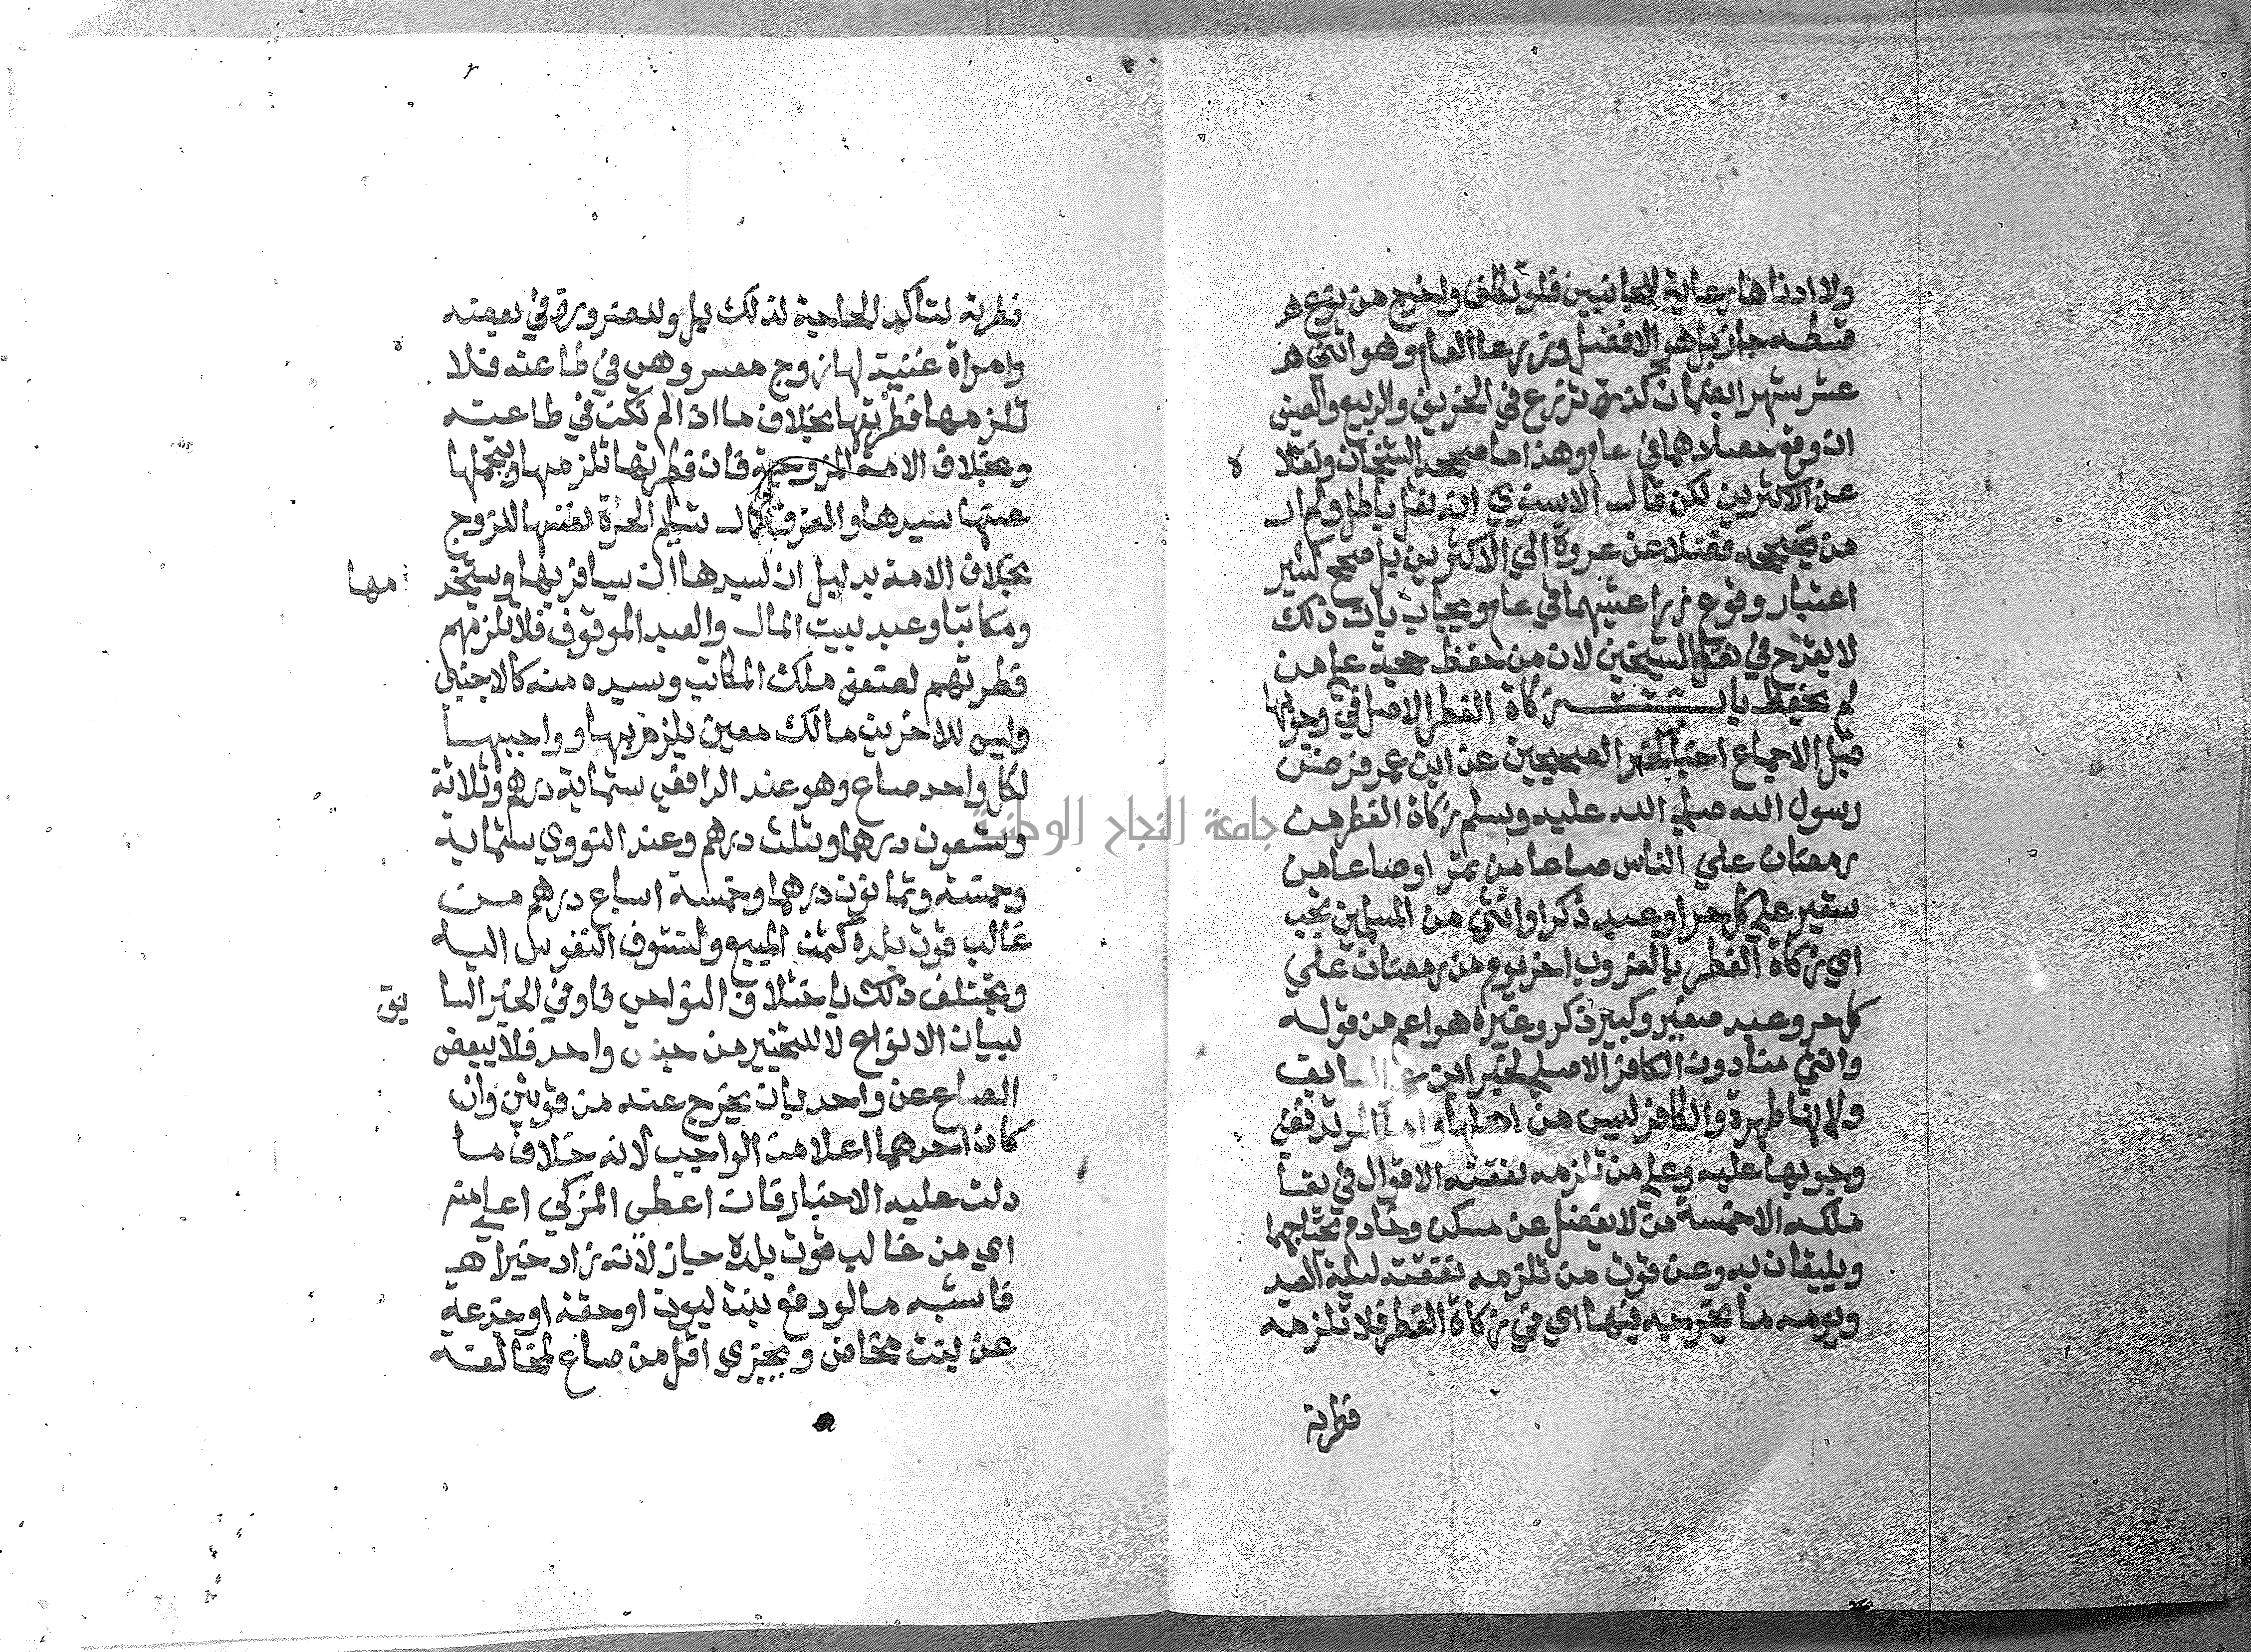 ولا ادناها رعاية للجانبين فلو تكلف واخرج من نوع ه
قسطه جاز بل هو الافضل وزرعا العام وهو اثني ه
عشر شهرا يضمان كذرة تزرع في الخريف والربيع والصيف
ان وقع حصادهما في عام وهذا ما صححه الشيخان ونقلاه
عن الاكثرين لكن قال الاسنوي انه نقل باطل ولم ار
من صححه فضلا عن عزوه الي الاكثرين بل صحح كثير
اعتبار وقوع زراعتهما في عام ويجاب بان ذلك
لا يقدح في نقل الشيخين لان من حفظ حجة علي من
لم يحفظ باب زكاة الفطر الاصل في وجوبها
قبل الاجماع اخبار كخبر الصحيحين عن ابن عمر فرض
رسول الله صلي الله عليه وسلم زكاة الفطر من
رمضان علي الناس صاعا من تمر او صاعا من
شعير علي كل حر او عبد ذكر او انثي من المسلمين يجب
اي زكاة الفطر بالغروب اخر يوم من رمضان علي
كل حر وعبد صغير وكبير ذكر وغيره هو اعم من قوله
وانثي منا دون الكافر الاصلي لخبر ابن عمر السابق
ولانها طهرة والكافر ليس من اهلها واما المرتد ففي
وجوبها عليه وعلي من تلزمه نفقته الاقوال في بقا
ملكه الا خمسة من لا يفضل عن مسكن وخادم يحتاجهما
ويليقان به وعن قوت من تلزمه نفقته ليلة العيد
ويومه ما يخرجه فيها اي في زكاة الفطر فلا تلزمه
فطرته
فطرته لتاكد الحاجة لذلك بل وللضرورة في بعضه
وامراة غنية لها زوج معسر وهي في طاعته فلا
تلزمها فطرتها بخلاف ما اذا لم تكن في طاعته
وبخلاف الامة المزوجة فان فطرتها تلزمها ويتحملها
عنها سيدها والفرق كمال تسليم الحرة نفسها للزوج
بخلاف الامة بدليل ان لسيدها ان يسافر بها ويستخد مها
ومكاتبا وعبد بيت المال والعبد الموقوف فلا تلزمهم
فطرتهم لضعف ملك المكاتب وسيده منه كالاجنبي
وليس للاخرين مالك معين يلزم بها وواجبها
لكل واحد صاع وهو عند الرافعي ستماية درهم وثلاثة
وتسعون درهما وثلث درهم وعند النووي ستماية
وخمسة وثمانون درهما وخمسة اسباع درهم من
غالب قوت بلده كثمن المبيع ولتشوف النفوس اليه
ويختلف ذلك باختلاف النواحي فاو في الخبر السا بق
لبيان الانواع لا للتخيير من جنس واحد فلا يبعض
الصاع عن واحد بان يخرج عنه من قوتين وان
كان احدهما اعلا من الواجب لانه خلاف ما
دلت عليه الاخبار فان اعطي المزكي اعلي منه
اي من غالب قوت بلده جاز لانه زاد خيرا ه
فاشبه ما لو دفع بنت لبون او حقة او جذعة
عن بنت مخاض ويجزي اقل من صاع لمخالفته
جامعة النجاح الوطنية